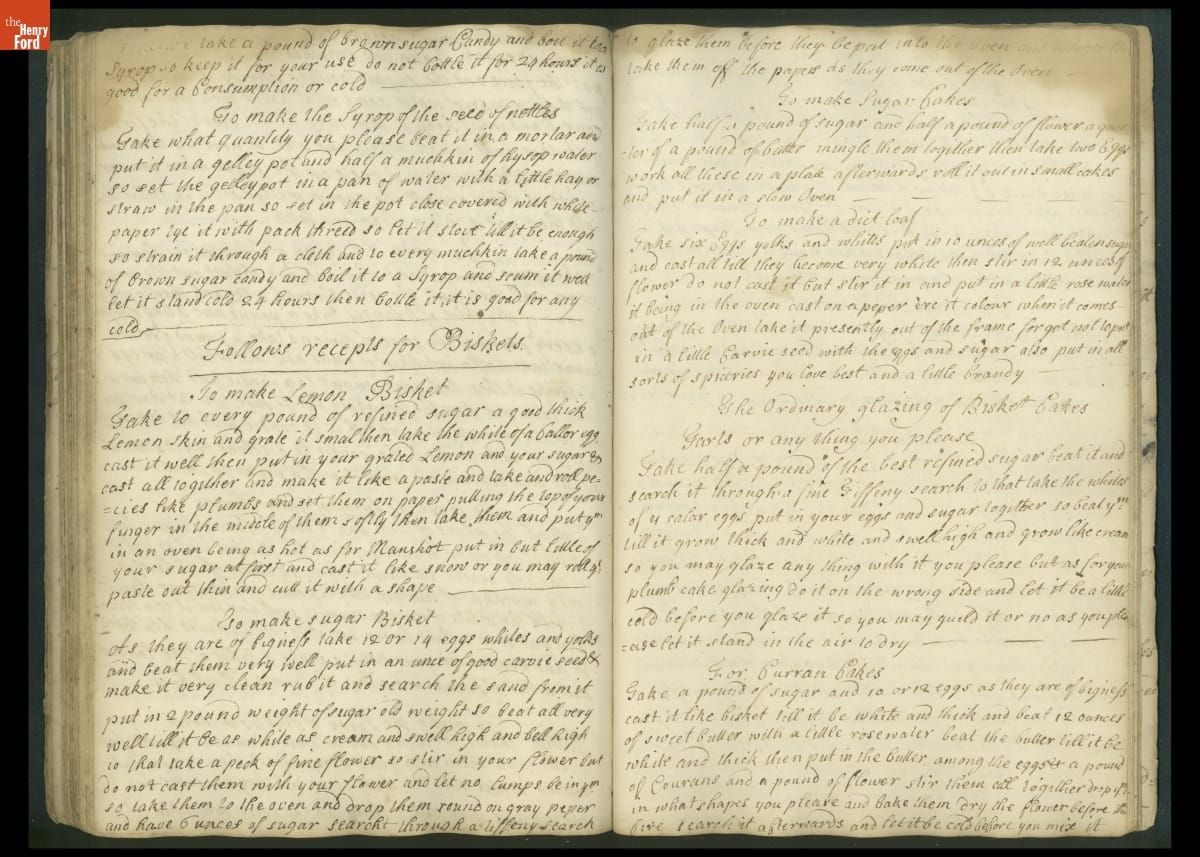 the
Henry
Ford
take a pound of brown sugar Candy and boil it to a
Syrop so keep it for your use do not bottle it for 24 hours it is
good for a Consumption or cold
To make the Syrop of the seed of nettles
Take what quantity you please beat it in a mortar and
put it in a gelley pot and half a muchkin of hysop water
so set the gelleypot in a pan of water with a little hay or
straw in the pan so set in the pot close covered with white
paper tye it with pack threed so let it stove till it be enough
so strain it through a cloth and to every muchkin take a pound
of brown sugar candy and boil it to a Syrop and scum it well
let it stand cold 24 hours then bottle it, it is good for any
cold
Follows recepts for Biskets.
To make Lemon Bisket
Take to every pound of refined sugar a good thick
Lemon skin and grate it smal then take the white of a callor egg
cast it well then put in your grated Lemon and your sugar &
cast all together and make it like a paste and take and roll pe=
=cies like plumbs and set them on paper pulling the top of your
finger in the middle of them softly then take them and put ym
in an oven being as hot as for Manshot put in but little of
your sugar at first and cast it like snow or you may roll yr
paste out thin and cutt it with a shape
To make sugar Bisket
As they are of bigness take 12 or 14 eggs whites and yolks
and beat them very well put in an unce of good carvie seed &
make it very clean rub it and search the sand from it
put in 2 pound weight of sugar old weight so beat all very
well till it be as white as cream and swell high and bell high
to that take a peck of fine flower so stir in your flower but
do not cast them with your flower and let no lumps be in ym
so take them to the oven and drop them round on gray peper
and have 6 unces of sugar searcht through a tiffeny search
to glaze them before they be put into the Oven and
take them off the papers as they come out of the Oven
To make Sugar Cakes
Take half a pound of sugar and half a pound of flower a quar
=ter of a pound of butter mingle them together then take two Eggs
work all these in a plate afterwards roll it out in small cakes
and put it in a slow Oven
To make a diet loaf
Take six Eggs yolks and whitts put in 10 unces of well beaten sugar
and cast all till they become very white then stir in 12 unces of
flower do not cast it but stir it in and put in a little rose water
it being in the oven cast on a peper 'ere it colour when it comes
out of the Oven take it presently out of the frame forget not to put
in a little Carvie seed with the eggs and sugar also put in all
sorts of spiceries you love best and a little brandy
The Ordinary glazing of Bisket Cakes
Tarts or any thing you please
Take half a pound of the best refined sugar beat it and
search it through a fine Tiffeny search to that take the whites
of 4 calar eggs put in your eggs and sugar together so beat ym
till it grow thick and white and swell high and grow like cream
so you may glaze any thing with it you please but as for your
plumb cake glazing do it on the wrong side and let it be a little
cold before you glaze it so you may guild it or no as you ple
=ase let it stand in the air to dry
For Curran Cakes
Take a pound of sugar and 10 or 12 eggs as they are of bigness
cast it like bisket till it be white and thick and beat 12 ounces
of sweet butter with a little rosewater beat the butter till it be
white and thick then put in the butter among the eggs & a pound
of Courans and a pound of flower stir them all together drop ym
in what shapes you please and bake them dry the flower before the
fire search it afterwards and let it be cold before you mix it